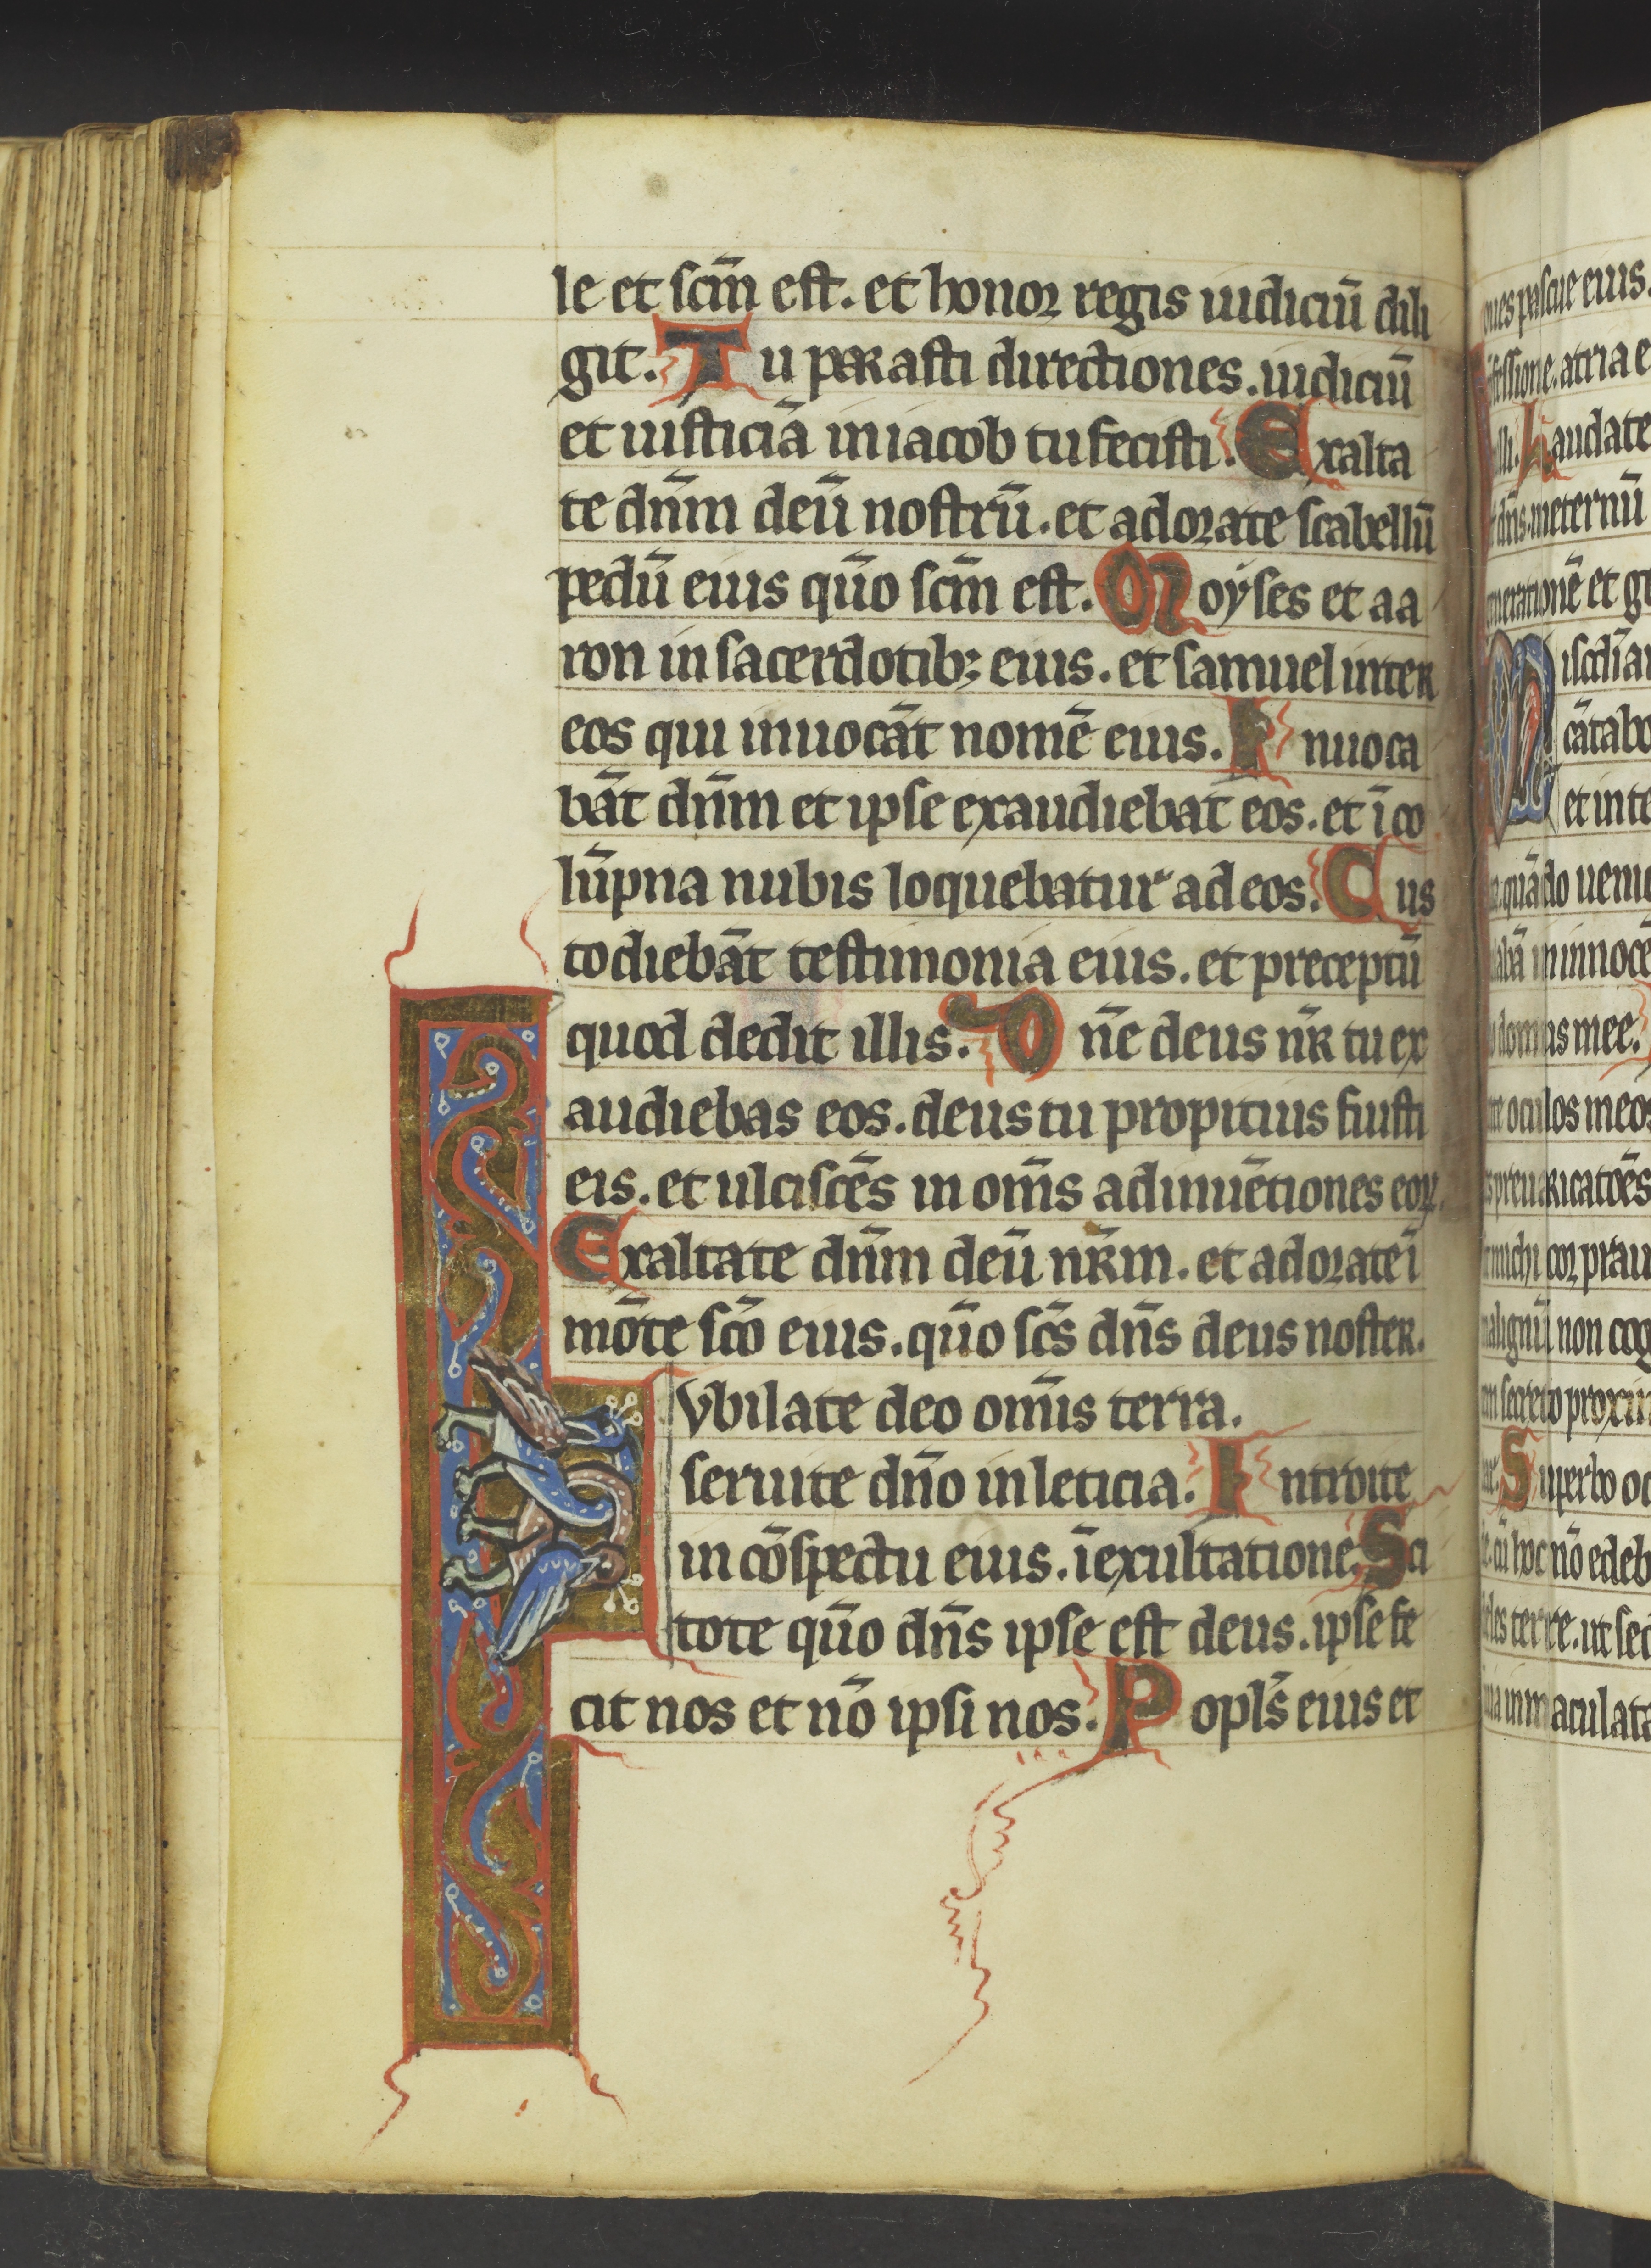 le et scm̄ est. et honor regis iudiciū dili
git. Tu parasti directiones. iudiciū
et iusticiā in iacob tu fecisti. Exalta
te dn̄m deū nostrū. et adorate scabellū
pedū eius qūo scm̄ est. Moyses et aa
ron in sacerdotib; eius. et samuel inter
eos qui inuocāt nomē eius. Inuoca
bāt dn̄m et ipse exaudiebat eos. et ī co
lūpna nubis loquebatur ad eos. Cus
todiebāt testimonia eius. et preceptū
quod dedit illis. Dn̄e deus nr̄ tu ex
audiebas eos. deus tu propitius fuisti
eis. et ulciscēs in om̄s adinuētiones eoꝝ.
Exaltate dn̄m deū nr̄m. et adorate ī
mōte scō eius. qūo scs̄ dn̄s deus noster.
Iubilate deo om̄is terra.
seruite dn̄o in leticia. Introite
in cōspectu eius. ī exultatione. Sci
tote qūo dn̄s ipse est deus. ipse fe
cit nos et nō ipsi nos. Popls̄ eius et
oues pascue eius.
fessione. atria e
illi. Laudate
dn̄s. ineternū
nerationē et ge
Miscdīa
cātabo
et inte
quādo ueni
labā in innocē
domus mee.
oculos meos
preuaricatōes
michi cor prau
malignū non cog
secreto proxim
Superbo oc
cū hoc nō edeb
les terre. ut sed
uia inmaculata